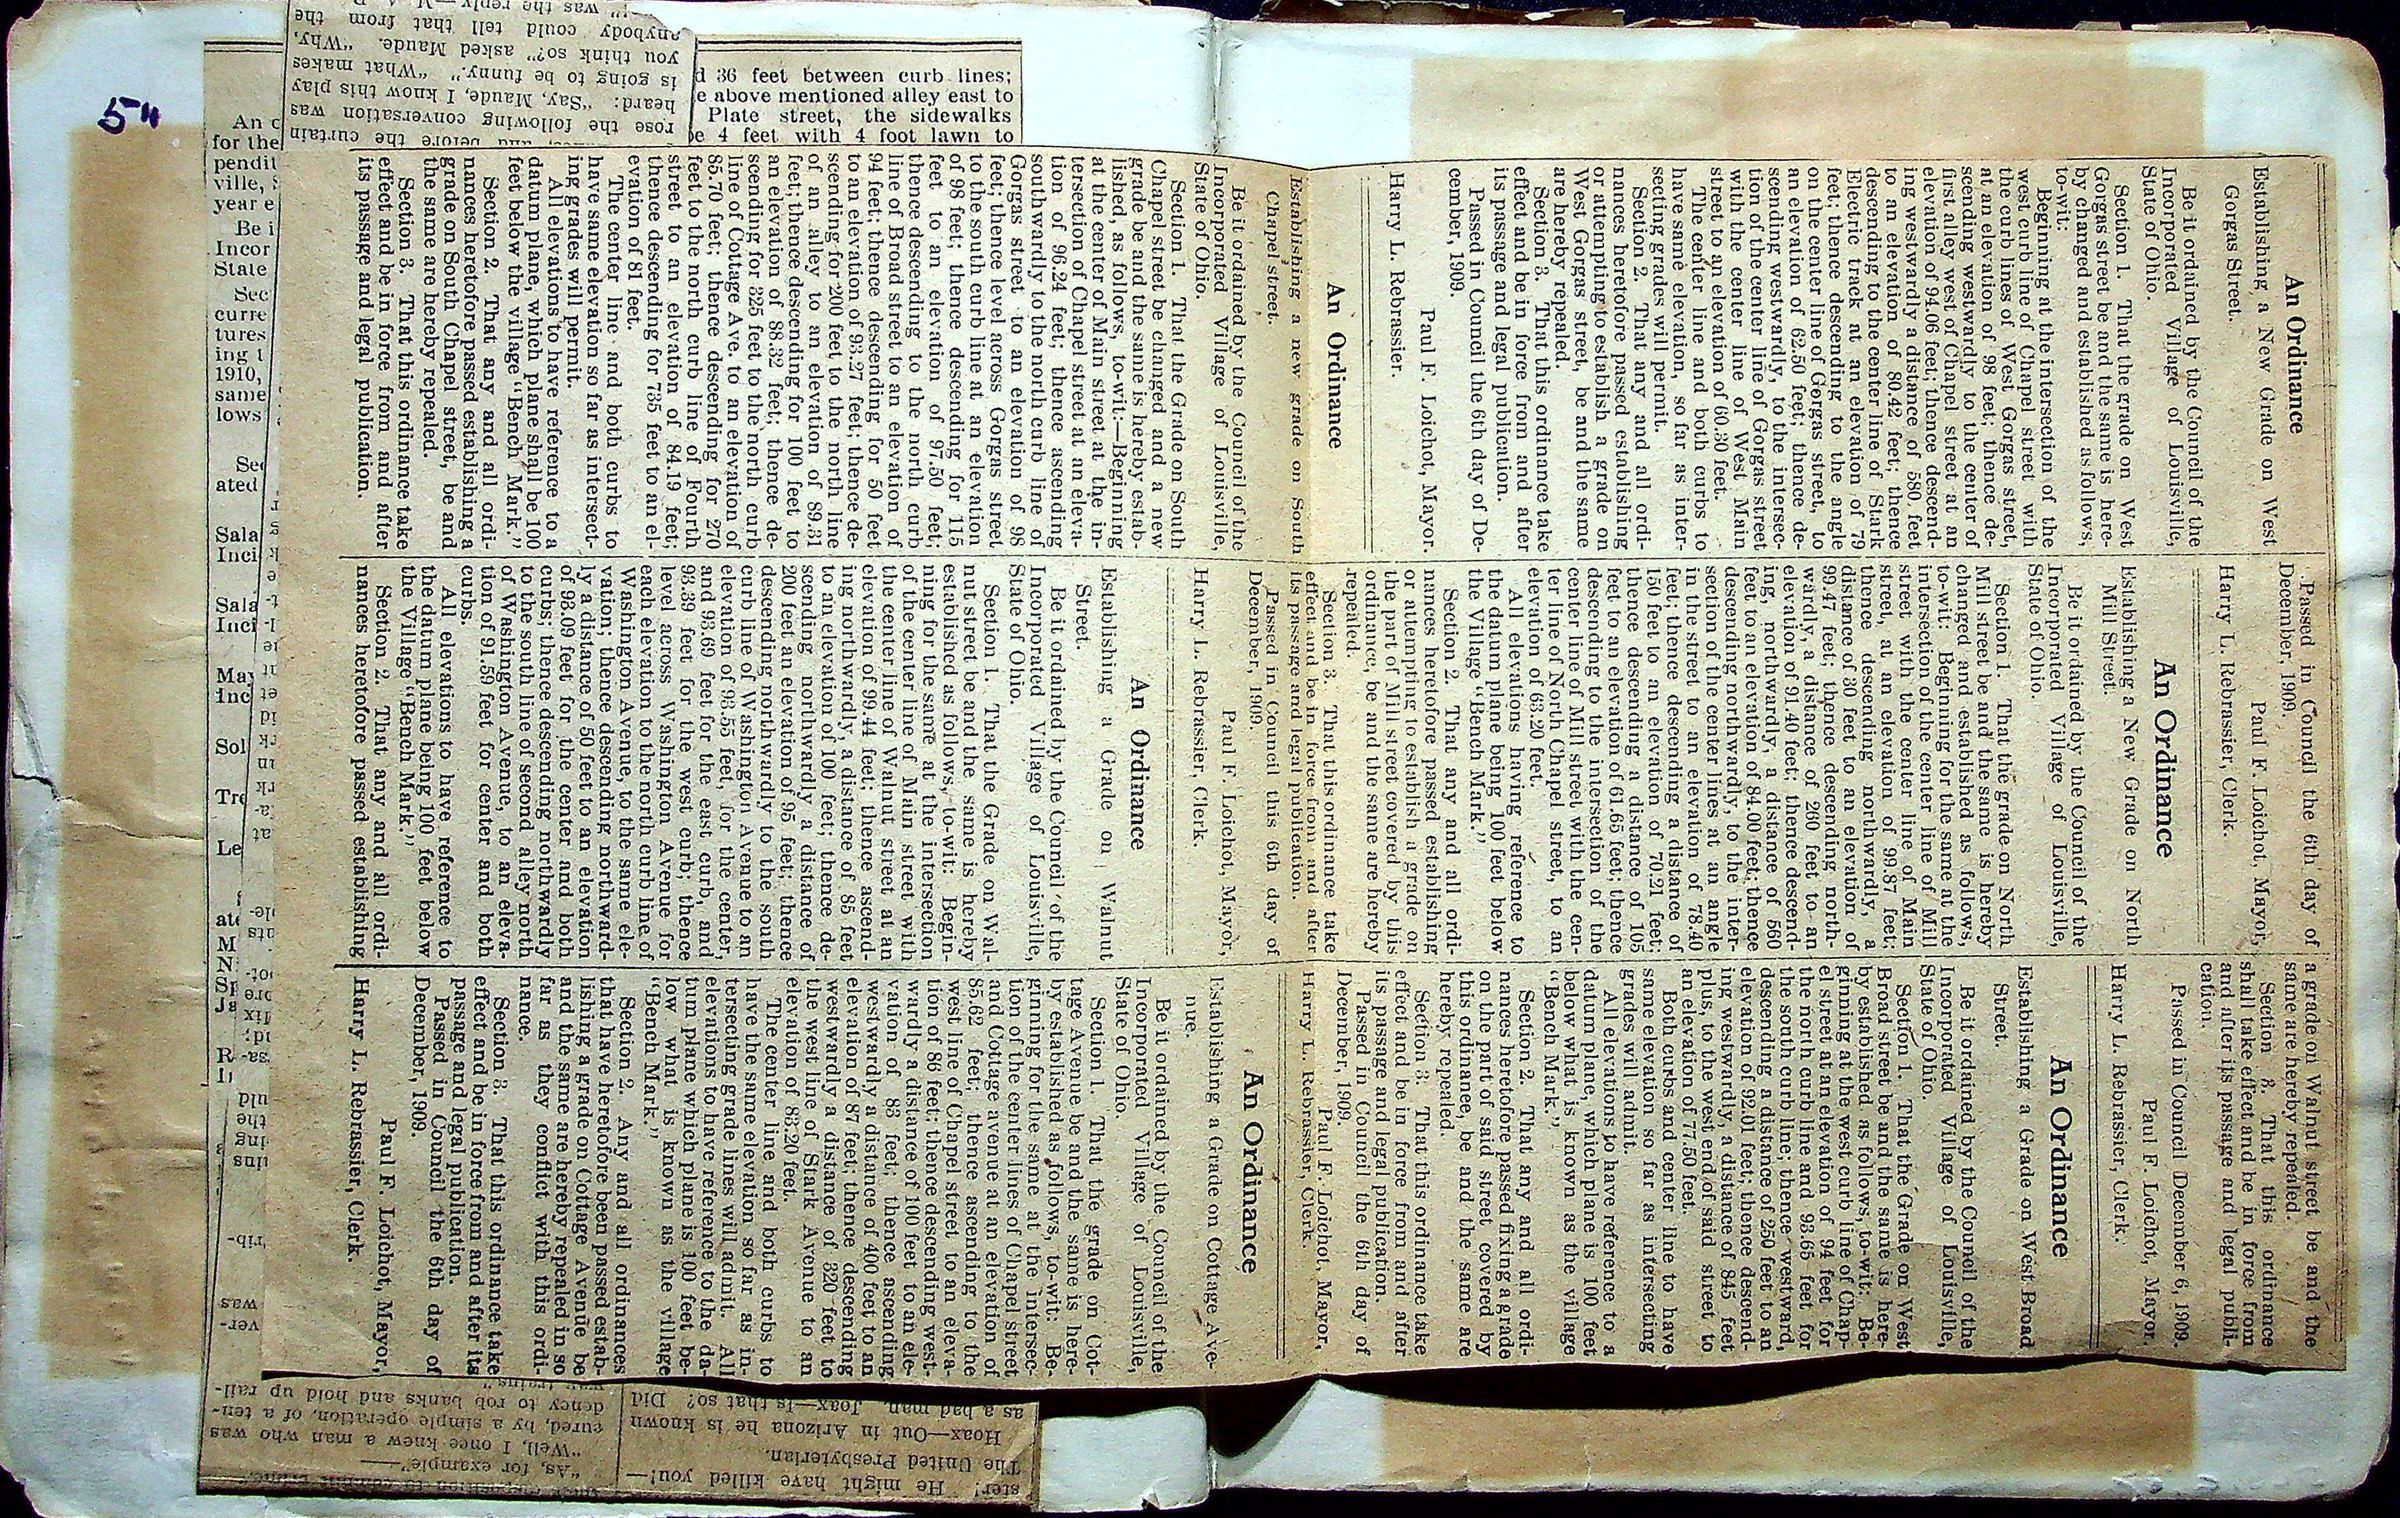 5"
An Ordinance
Establishing a New Grade on West
Gorgas Street.
Be it ordained by the Council of the
Incorporated Village of Louisville,
State of Ohio.
Section 1. That the grade on West
Gorgas street be and the same is here-
by changed and established as follows,
to-wit:
Beginning at the intersection of the
west curb line of Chapel street with
the curb lines of West Gorgas street,
at an elevation of 98 feet; thence de-
scending westwardly to the center of
first alley west of Chapel street at an
elevation of 94.06 feet; thence descend-
ing westwardly a distance of 580 feet
to an elevation of 80.42 feet; thence
descending to the center line of Stark
Electric track at an elevation of 79
feet; thence descending to the angle
on the center line of Gorgas street, to
an elevation of 62.50 feet; thence de-
scending westwardly, to the intersec-
tion of the center line of Gorgas street
with the center line of West Main
street to an elevation of 60.30 feet.
The center line and both curbs to
have same elevation, so far as inter-
secting grades will permit.
Section 2. That any and all ordi-
nances heretofore passed establishing
or attempting to establish a grade on
West Gorgas street, be and the same
are hereby repealed.
Section 3. That this ordinance take
effect and be in force from and after
its passage and legal publication.
Passed in Council the 6th day of De-
cember, 1909.
Paul F. Loichot, Mayor.
Harry L. Rebrassier.
An Ordinance
Establishing a new grade on South
Chapel street.
Be it ordained by the Council of the
Incorporated Village of Louisville,
State of Ohio.
Section 1. That the Grade on South
Chapel street be changed and a new
grade be and the same is hereby estab-
lished, as follows, to-wit:—Beginning
at the center of Main street at the in-
tersection of Chapel street at an eleva-
tion of 96.24 feet; thence ascending
southwardly to the north curb line of
Gorgas street to an elevation of 98
feet; thence level across Gorgas street
to the south curb line at an elevation
of 98 feet; thence descending for 115
feet to an elevation of 97.50 feet;
thence descending to the north curb
line of Broad street to an elevation of
94 feet; thence descending for 50 feet
to an elevation of 93.27 feet; thence de-
scending for 200 feet to the north line
of an alley to an elevation of 89.31
feet; thence descending for 100 feet to
an elevation of 88.32 feet; thence de-
scending for 325 feet to the north curb
line of Cottage Ave. to an elevation of
85.70 feet; thence descending for 270
feet to the north curb line of Fourth
street to an elevation of 84.19 feet;
thence descending for 735 feet to an el-
evation of 81 feet.
The center line and both curbs to
have same elevation so far as intersect-
ing grades will permit.
All elevations to have reference to a
datum plane, which plane shall be 100
feet below the village "Bench Mark."
Section 2. That any and all ordi-
nances heretofore passed establishing a
grade on South Chapel street, be and
the same are hereby repealed.
Section 3. That this ordinance take
effect and be in force from and after
its passage and legal publication.
Passed in Council the 6th day of
December, 1909.
Paul F. Loichot, Mayor,
Harry L. Rebrassier, Clerk.
An Ordinance
Establishing a New Grade on North
Mill Street.
Be it ordained by the Council of the
Incorporated Village of Louisville,
State of Ohio.
Section 1. That the grade on North
Mill street be and the same is hereby
changed and established as follows,
to-wit: Beginning for the same at the
intersection of the center line of Mill
street with the center line of Main
street, at an elevation of 99.87 feet;
thence descending northwardly, a
distance of 30 feet to an elevation of
99.47 feet; thence descending north-
wardly, a distance of 260 feet to an
elevation of 91.40 feet; thence descend-
ing, northwardly, a distance of 560
feet to an elevation of 84.00 feet; thence
descending northwardly, to the inter-
section of the center lines at an angle
in the street to an elevation of 78.40
feet; thence descending a distance of
150 feet to an elevation of 70.21 feet;
thence descending a distance of 105
feet to an elevation of 61.65 feet; thence
descending to the intersection of the
center line of Mill street with the cen-
ter line of North Chapel street, to an
elevation of 63.20 feet.
All elevations having reference to
the datum plane being 100 feet below
the Village "Bench Mark."
Section 2. That any and all ordi-
nances heretofore passed establishing
or attempting to establish a grade on
the part of Mill street covered by this
ordinance, be and the same are hereby
repealed.
Section 3. That this ordinance take
effect and be in force from and after
its passage and legal publication.
Passed in Council this 6th day of
December, 1909.
Paul F. Loichot, Mayor,
Harry L. Rebrassier, Clerk.
An Ordinance
Establishing a Grade on Walnut
Street.
Be it ordained by the Council of the
Incorporated Village of Louisville,
State of Ohio.
Section 1. That the Grade on Wal-
nut street be and the same is hereby
established as follows, to-wit: Begin-
ning for the same at the intersection
of the center line of Main street with
the center line of Walnut street at an
elevation of 99.44 feet; thence ascend-
ing northwardly, a distance of 85 feet
to an elevation of 100 feet; thence de-
scending northwardly a distance of
200 feet an elevation of 95 feet; thence
descending northwardly to the south
curb line of Washington Avenue to an
elevation of 93.55 feet, for the center,
and 93.69 feet for the east curb, and
93.39 feet for the west curb; thence
level across Washington Avenue for
each elevation to the north curb line of
Washington Avenue, to the same ele-
vation; thence descending northward-
ly a distance of 50 feet to an elevation
of 93.09 feet for the center and both
curbs; thence descending northwardly
to the south line of second alley north
of Washington Avenue, to an eleva-
tion of 91.59 feet for center and both
curbs.
All elevations to have reference to
the datum plane being 100 feet below
the Village "Bench Mark."
Section 2. That any and all ordi-
nances heretofore passed establishing
a grade on Walnut street be and the
same are hereby repealed.
Section 3. That this ordinance
shall take effect and be in force from
and after its passage and legal publi-
cation.
Passed in Council December 6, 1909.
Paul F. Loichot, Mayor.
Harry L. Rebrassier, Clerk.
An Ordinance
Establishing a Grade on West Broad
Street.
Be it ordained by the Council of the
Incorporated Village of Louisville,
State of Ohio.
Section 1. That the Grade on West
Broad street be and the same is here-
by established as follows, to-wit: Be-
ginning at the west curb line of Chap-
el street at an elevation of 94 feet for
the north curb line and 93.65 feet for
the south curb line; thence westward,
descending a distance of 250 feet to an
elevation of 92.01 feet; thence descend-
ing westwardly, a distance of 845 feet
plus, to the west end of said street to
an elevation of 77.50 feet.
Both curbs and center line to have
same elevation so far as intersecting
grades will admit.
All elevations to have reference to a
datum plane, which plane is 100 feet
below what is known as the village
"Bench Mark."
Section 2. That any and all ordi-
nances heretofore passed fixing a grade
on the part of said street covered by
this ordinance, be and the same are
hereby repealed.
Section 3. That this ordinance take
effect and be in force from and after
its passage and legal publication.
Passed in Council the 6th day of
December, 1909.
Paul F. Loichot, Mayor,
Harry L. Rebrassier, Clerk.
An Ordinance
Establishing a Grade on Cottage Ave-
nue.
Be it ordained by the Council of the
Incorporated Village of Louisville,
State of Ohio.
Section 1. That the grade on Cot-
tage Avenue be and the same is here-
by established as follows, to-wit: Be-
ginning for the same at the intersec-
tion of the center lines of Chapel street
and Cottage avenue at an elevation of
85.62 feet; thence ascending to the
west line of Chapel street to an eleva-
tion of 86 feet; thence descending west-
wardly a distance of 100 feet to an ele-
vation of 83 feet; thence ascending
westwardly a distance of 400 feet to an
elevation of 87 feet; thence descending
westwardly a distance of 320 feet to
the west line of Stark Avenue to an
elevation of 83.20 feet.
The center line and both curbs to
have the same elevation so far as in-
tersecting grade lines will admit. All
elevations to have reference to the da-
tum plane which plane is 100 feet be-
low what is known as the village
"Bench Mark."
Section 2. Any and all ordinances
that have heretofore been passed estab-
lishing a grade on Cottage Avenue be
and the same are hereby repealed in so
far as they conflict with this ordi-
nance.
Section 3. That this ordinance take
effect and be in force from and after its
passage and legal publication.
Passed in Council the 6th day of
December, 1909.
Paul F. Loichot, Mayor,
Harry L. Rebrassier, Clerk.
36 feet between curb lines;
above mentioned alley east to
Plate street, the sidewalks
4 feet with 4 foot lawn to
before the curtain
rose the following conversation was
heard: "Say, Maude, I know this play
is going to be funny." "What makes
you think so?" asked Maude. "Why,
anybody could tell that from the
was the reply
for the
ville,
year
Be
Incor
State
Sec
curre
tures
ing
1910,
same
lows
ated
Sala
Inci
Sala
Inci
May
Inc
Sol
Le
ster! He might have killed you!—
The United Presbyterian.
Hoax—Out in Arizona he is known
as a bad man. Joax—Is that so? Did
"As, for example"—
"Well, I once knew a man who was
cured, by a simple operation, of a ten-
dency to rob banks and hold up rail-
way trains."